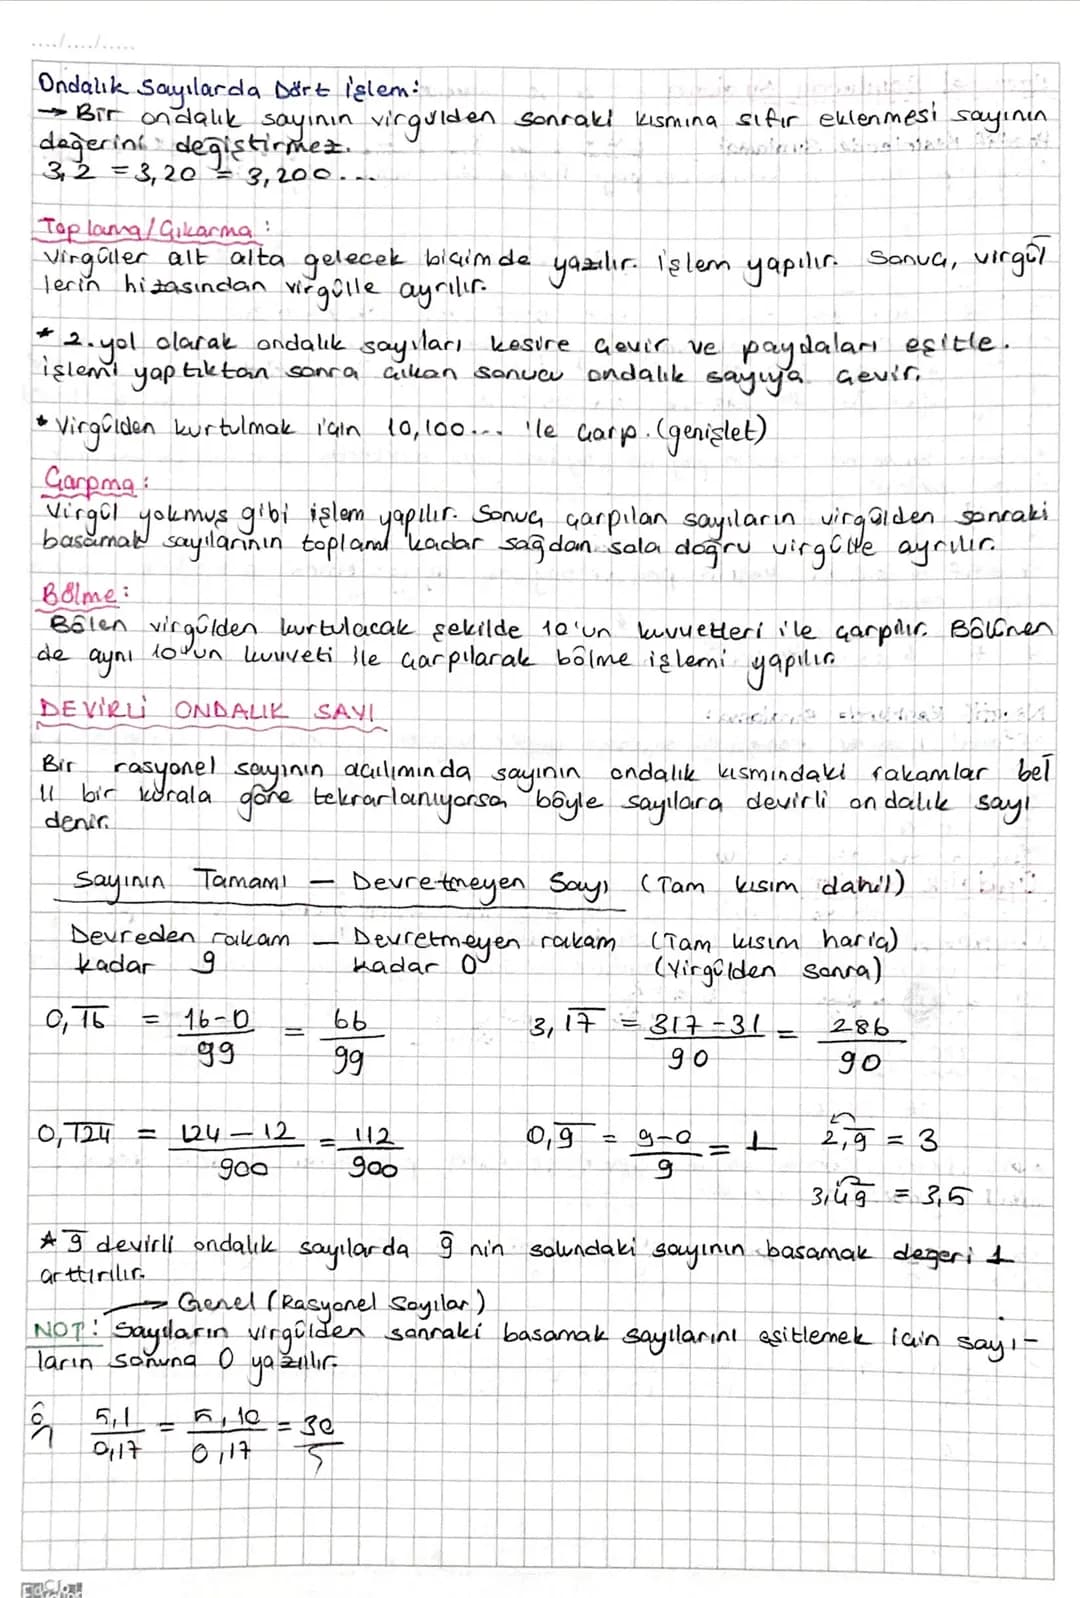 Ondalık Sayılarda Dört İşlem:
→ Bir ondalık sayının virgülden sonraki kısmına sıfır eklenmesi sayının
değerini değiştirmez.
3,2 = 3,20 = 3,200...
Toplama/Çıkarma :
Virgüller alt alta gelecek biçimde yazılır. İşlem yapılır. Sonuç, virgül
lerin hizasından virgülle ayrılır.
* 2. yol olarak ondalık sayıları kesire çevir ve paydaları eşitle.
işlemi yaptıktan sonra çıkan sonucu ondalık sayıya çevir.
* Virgülden kurtulmak için 10,100... ile çarp. (genişlet)
Çarpma :
Virgül yokmuş gibi işlem yapılır. Sonuç çarpılan sayıların virgülden sonraki
basamak sayılarının toplamı kadar sağdan sola doğru virgülle ayrılır.
Bölme :
Bölen virgülden kurtulacak şekilde 10'un kuvvetleri ile çarpılır. Bölünen
de aynı 10'un kuvveti ile çarpılarak bölme işlemi yapılır.
DEVİRLİ ONDALIK SAYI
Bir rasyonel sayının açılımında sayının ondalık kısmındaki rakamlar bel
li bir kurala göre tekrarlanıyorsa böyle sayılara devirli ondalık sayı
denir.
Sayının Tamamı — Devretmeyen Sayı (Tam kısım dahil)
Devreden rakam — Devretmeyen rakam (Tam kısım hariç)
kadar 9 kadar 0 (Virgülden sonra)
0,1̅6̅ = 16-0/99 = 66/99 3,1̅7̅ = 317-31/90 = 286/90
0,1̅2̅4̅ = 124-12/900 = 112/900 0,9̅ = 9-0/9 = 1 2,9̅ = 3
3,49̅ = 3,5
* 9̅ devirli ondalık sayılarda 9̅ nin solundaki sayının basamak değeri 1
arttırılır.
→ Genel (Rasyonel Sayılar)
NOT: Sayıların virgülden sonraki basamak sayılarını eşitlemek için sayı-
ların sonuna 0 yazılır.
ör 5,1/0,17 = 5,10/0,17 = 30